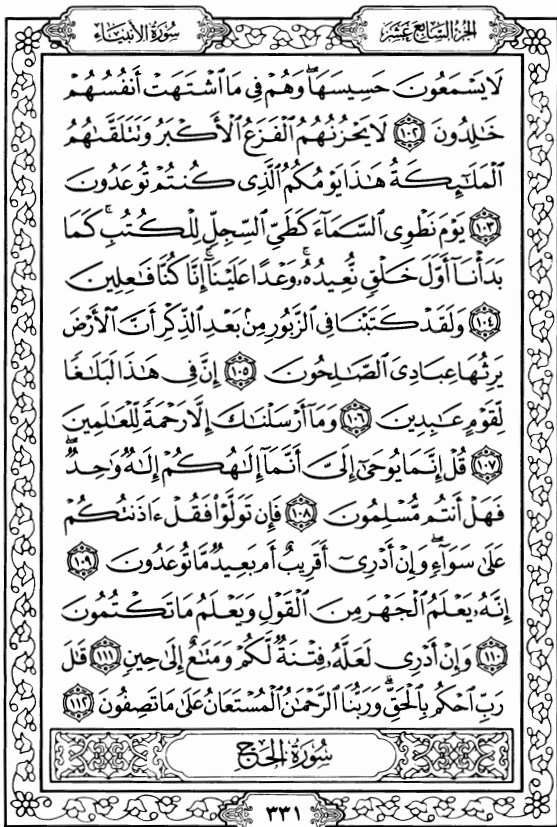 سُورَةُ الأَنبِيَاءِ
الجُزْءُ السَّابِعَ عَشَرَ
لَا يَسْمَعُونَ حَسِيسَهَا ۖ وَهُمْ فِي مَا اشْتَهَتْ أَنفُسُهُمْ
خَٰلِدُونَ ١٠٢ لَا يَحْزُنُهُمُ الْفَزَعُ الْأَكْبَرُ وَتَتَلَقَّىٰهُمُ
الْمَلَٰٓئِكَةُ هَٰذَا يَوْمُكُمُ الَّذِى كُنتُمْ تُوعَدُونَ
١٠٣ يَوْمَ نَطْوِى السَّمَآءَ كَطَىِّ السِّجِلِّ لِلْكُتُبِ ۚ كَمَا
بَدَأْنَآ أَوَّلَ خَلْقٍ نُّعِيدُهُۥ ۚ وَعْدًا عَلَيْنَآ ۚ إِنَّا كُنَّا فَٰعِلِينَ
١٠٤ وَلَقَدْ كَتَبْنَا فِى الزَّبُورِ مِنۢ بَعْدِ الذِّكْرِ أَنَّ الْأَرْضَ
يَرِثُهَا عِبَادِىَ الصَّٰلِحُونَ ١٠٥ إِنَّ فِى هَٰذَا لَبَلَٰغًا
لِّقَوْمٍ عَٰبِدِينَ ١٠٦ وَمَآ أَرْسَلْنَٰكَ إِلَّا رَحْمَةً لِّلْعَٰلَمِينَ
١٠٧ قُلْ إِنَّمَا يُوحَىٰٓ إِلَىَّ أَنَّمَآ إِلَٰهُكُمْ إِلَٰهٌ وَٰحِدٌ ۖ
فَهَلْ أَنتُم مُّسْلِمُونَ ١٠٨ فَإِن تَوَلَّوْا۟ فَقُلْ ءَاذَنتُكُمْ
عَلَىٰ سَوَآءٍ ۖ وَإِنْ أَدْرِىٓ أَقَرِيبٌ أَم بَعِيدٌ مَّا تُوعَدُونَ ١٠٩
إِنَّهُۥ يَعْلَمُ الْجَهْرَ مِنَ الْقَوْلِ وَيَعْلَمُ مَا تَكْتُمُونَ
١١٠ وَإِنْ أَدْرِى لَعَلَّهُۥ فِتْنَةٌ لَّكُمْ وَمَتَٰعٌ إِلَىٰ حِينٍ ١١١ قَٰلَ
رَبِّ احْكُم بِالْحَقِّ ۗ وَرَبُّنَا الرَّحْمَٰنُ الْمُسْتَعَانُ عَلَىٰ مَا تَصِفُونَ ١١٢
سُورَةُ الحَجِّ
٣٣١